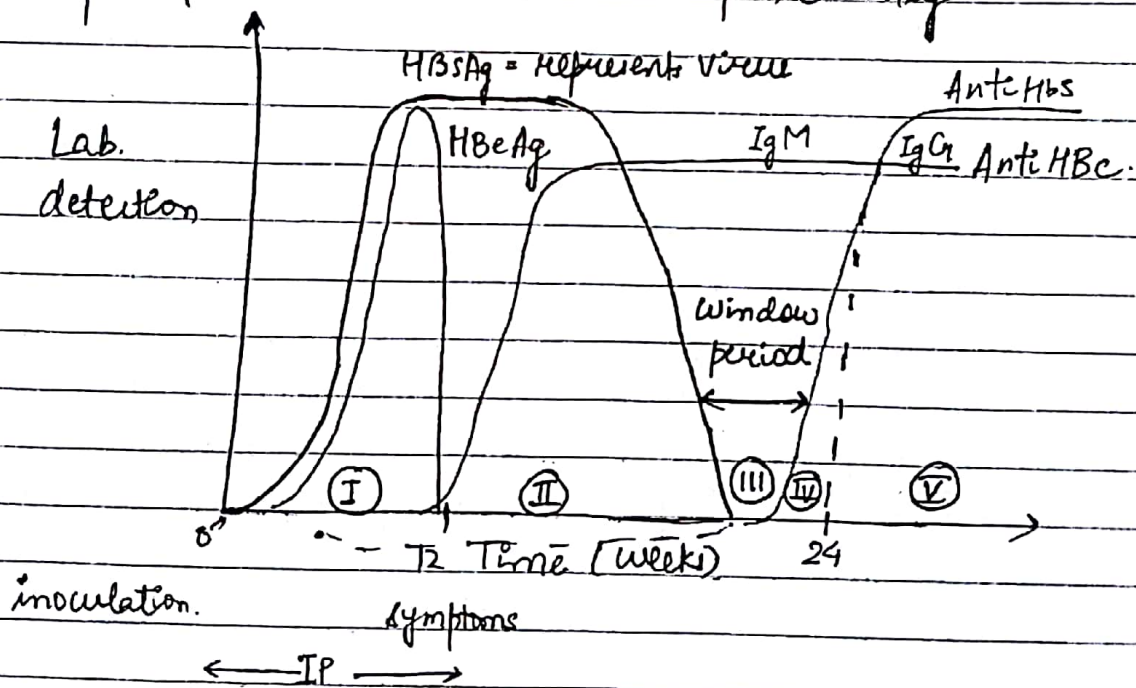 HBsAg = represents virus
Anti Hbs
Lab.
detection
HBeAg
IgM
IgG
Anti HBc.
Window
period
I
II
III
IV
V
0
12
Time (weeks)
24
inoculation.
symptoms
IP